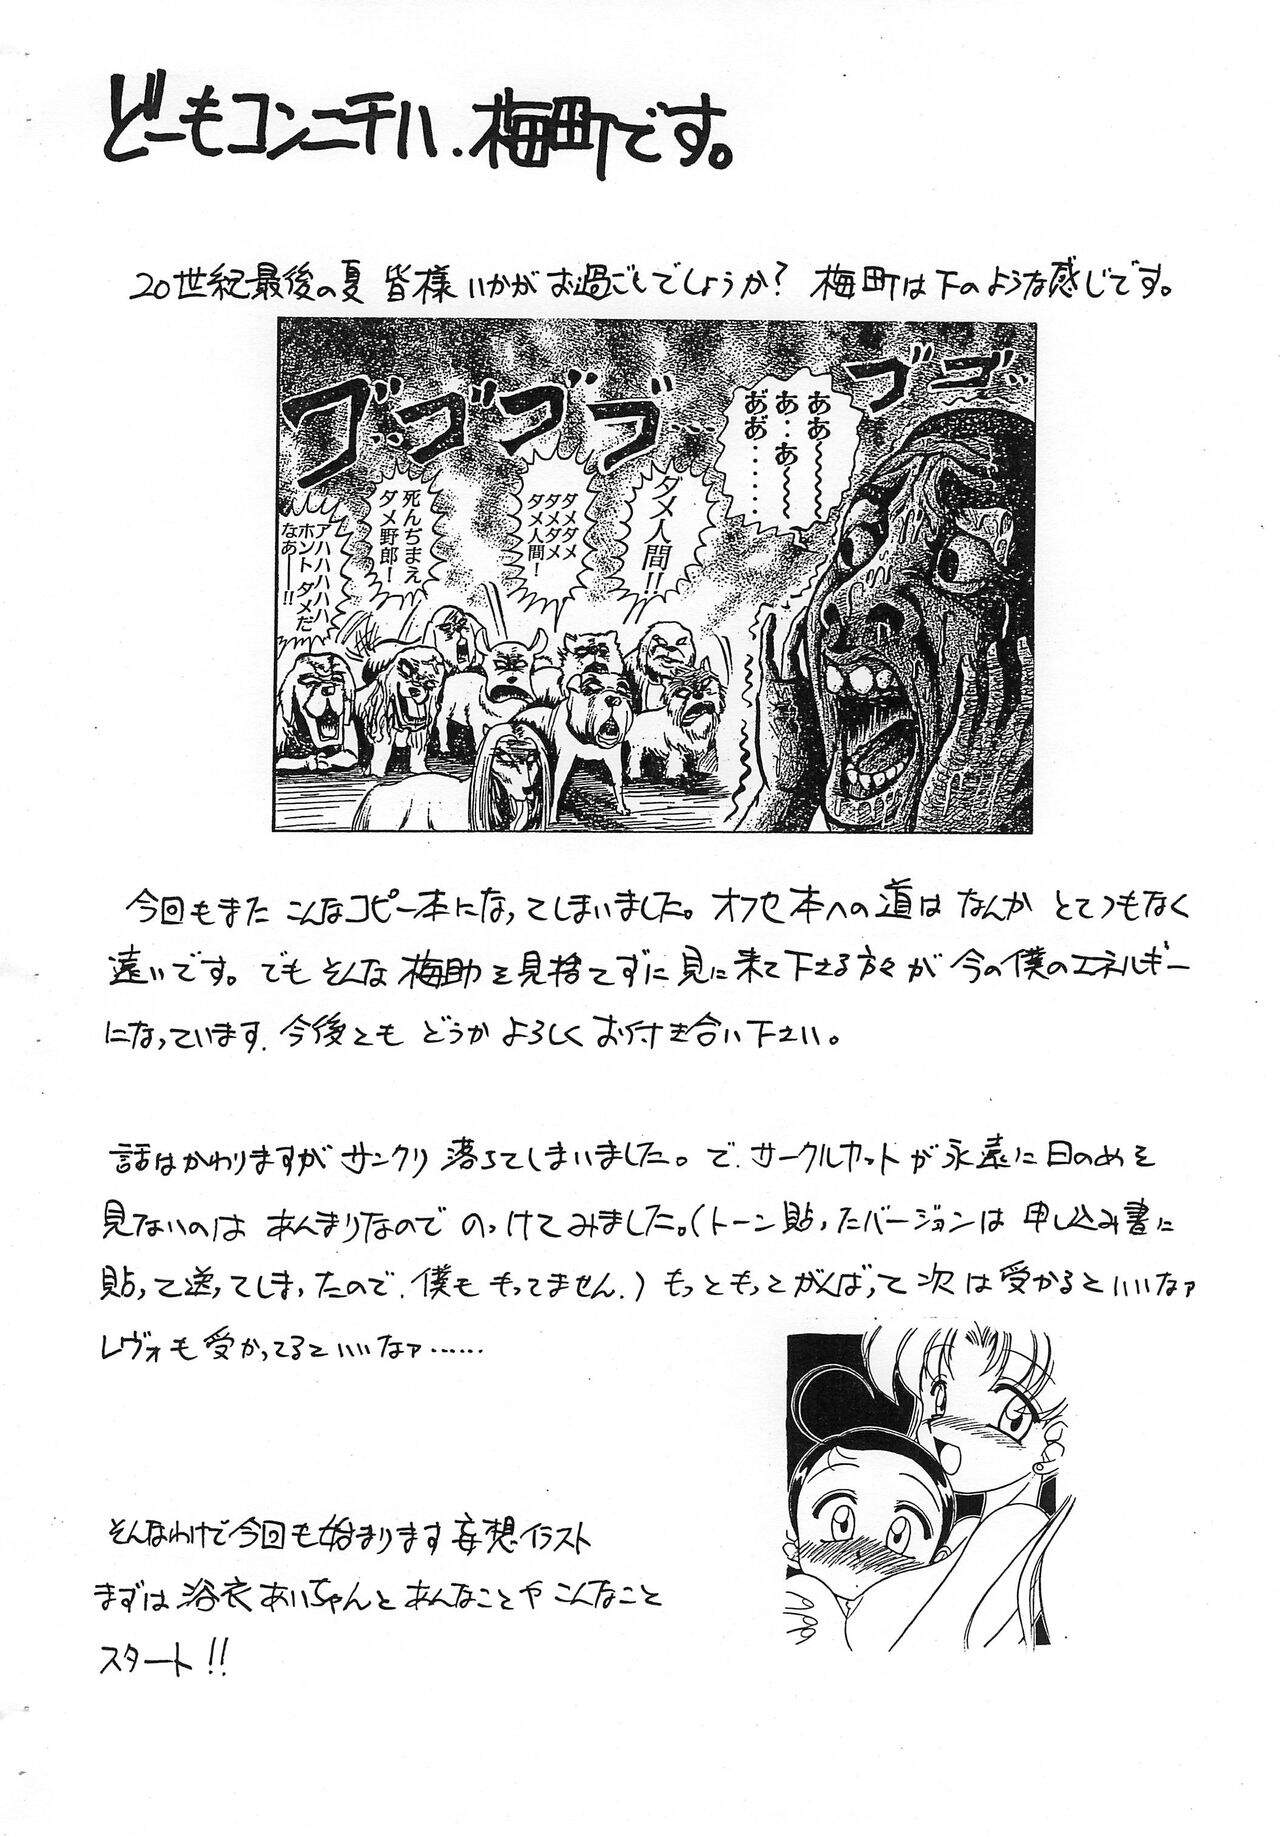 どーもコンニチハ.梅町です。
20世紀最後の夏 皆様いかがお過ごしでしょうか? 梅町は下のような感じです。
ゴゴ…
ああ〜
あ‥あ〜
あ゛あ゛……
ゴゴゴゴ…
ダメ人間!!
ダメダメ
ダメダメ
ダメ人間!
死んぢまえ
ダメ野郎!
アハハハハハ
ホント ダメだ
なあ──!!
今回もまた こんなコピー本になってしまいました。オフセ本への道は なんか とてつもなく
遠いです。でも そんな 梅助を見捨てずに見に来て下さる方々が 今の僕のエネルギー
になっています.今後とも どうか よろしく お付き合い下さい。
話はかわりますが サンクリ 落ちてしまいました。で.サークルカットが 永遠に日のめを
見ないのは あんまりなので のっけてみました。(トーン貼ったバージョンは 申し込み書に
貼って送ってしまったので.僕も もってません.) もっともっとがんばって 次は受かるといいなァ
レヴォも受かってるといいなァ……
そんなわけで今回も始まります妄想イラスト
まずは 浴衣あいちゃんと あんなことや こんなこと
スタート!!